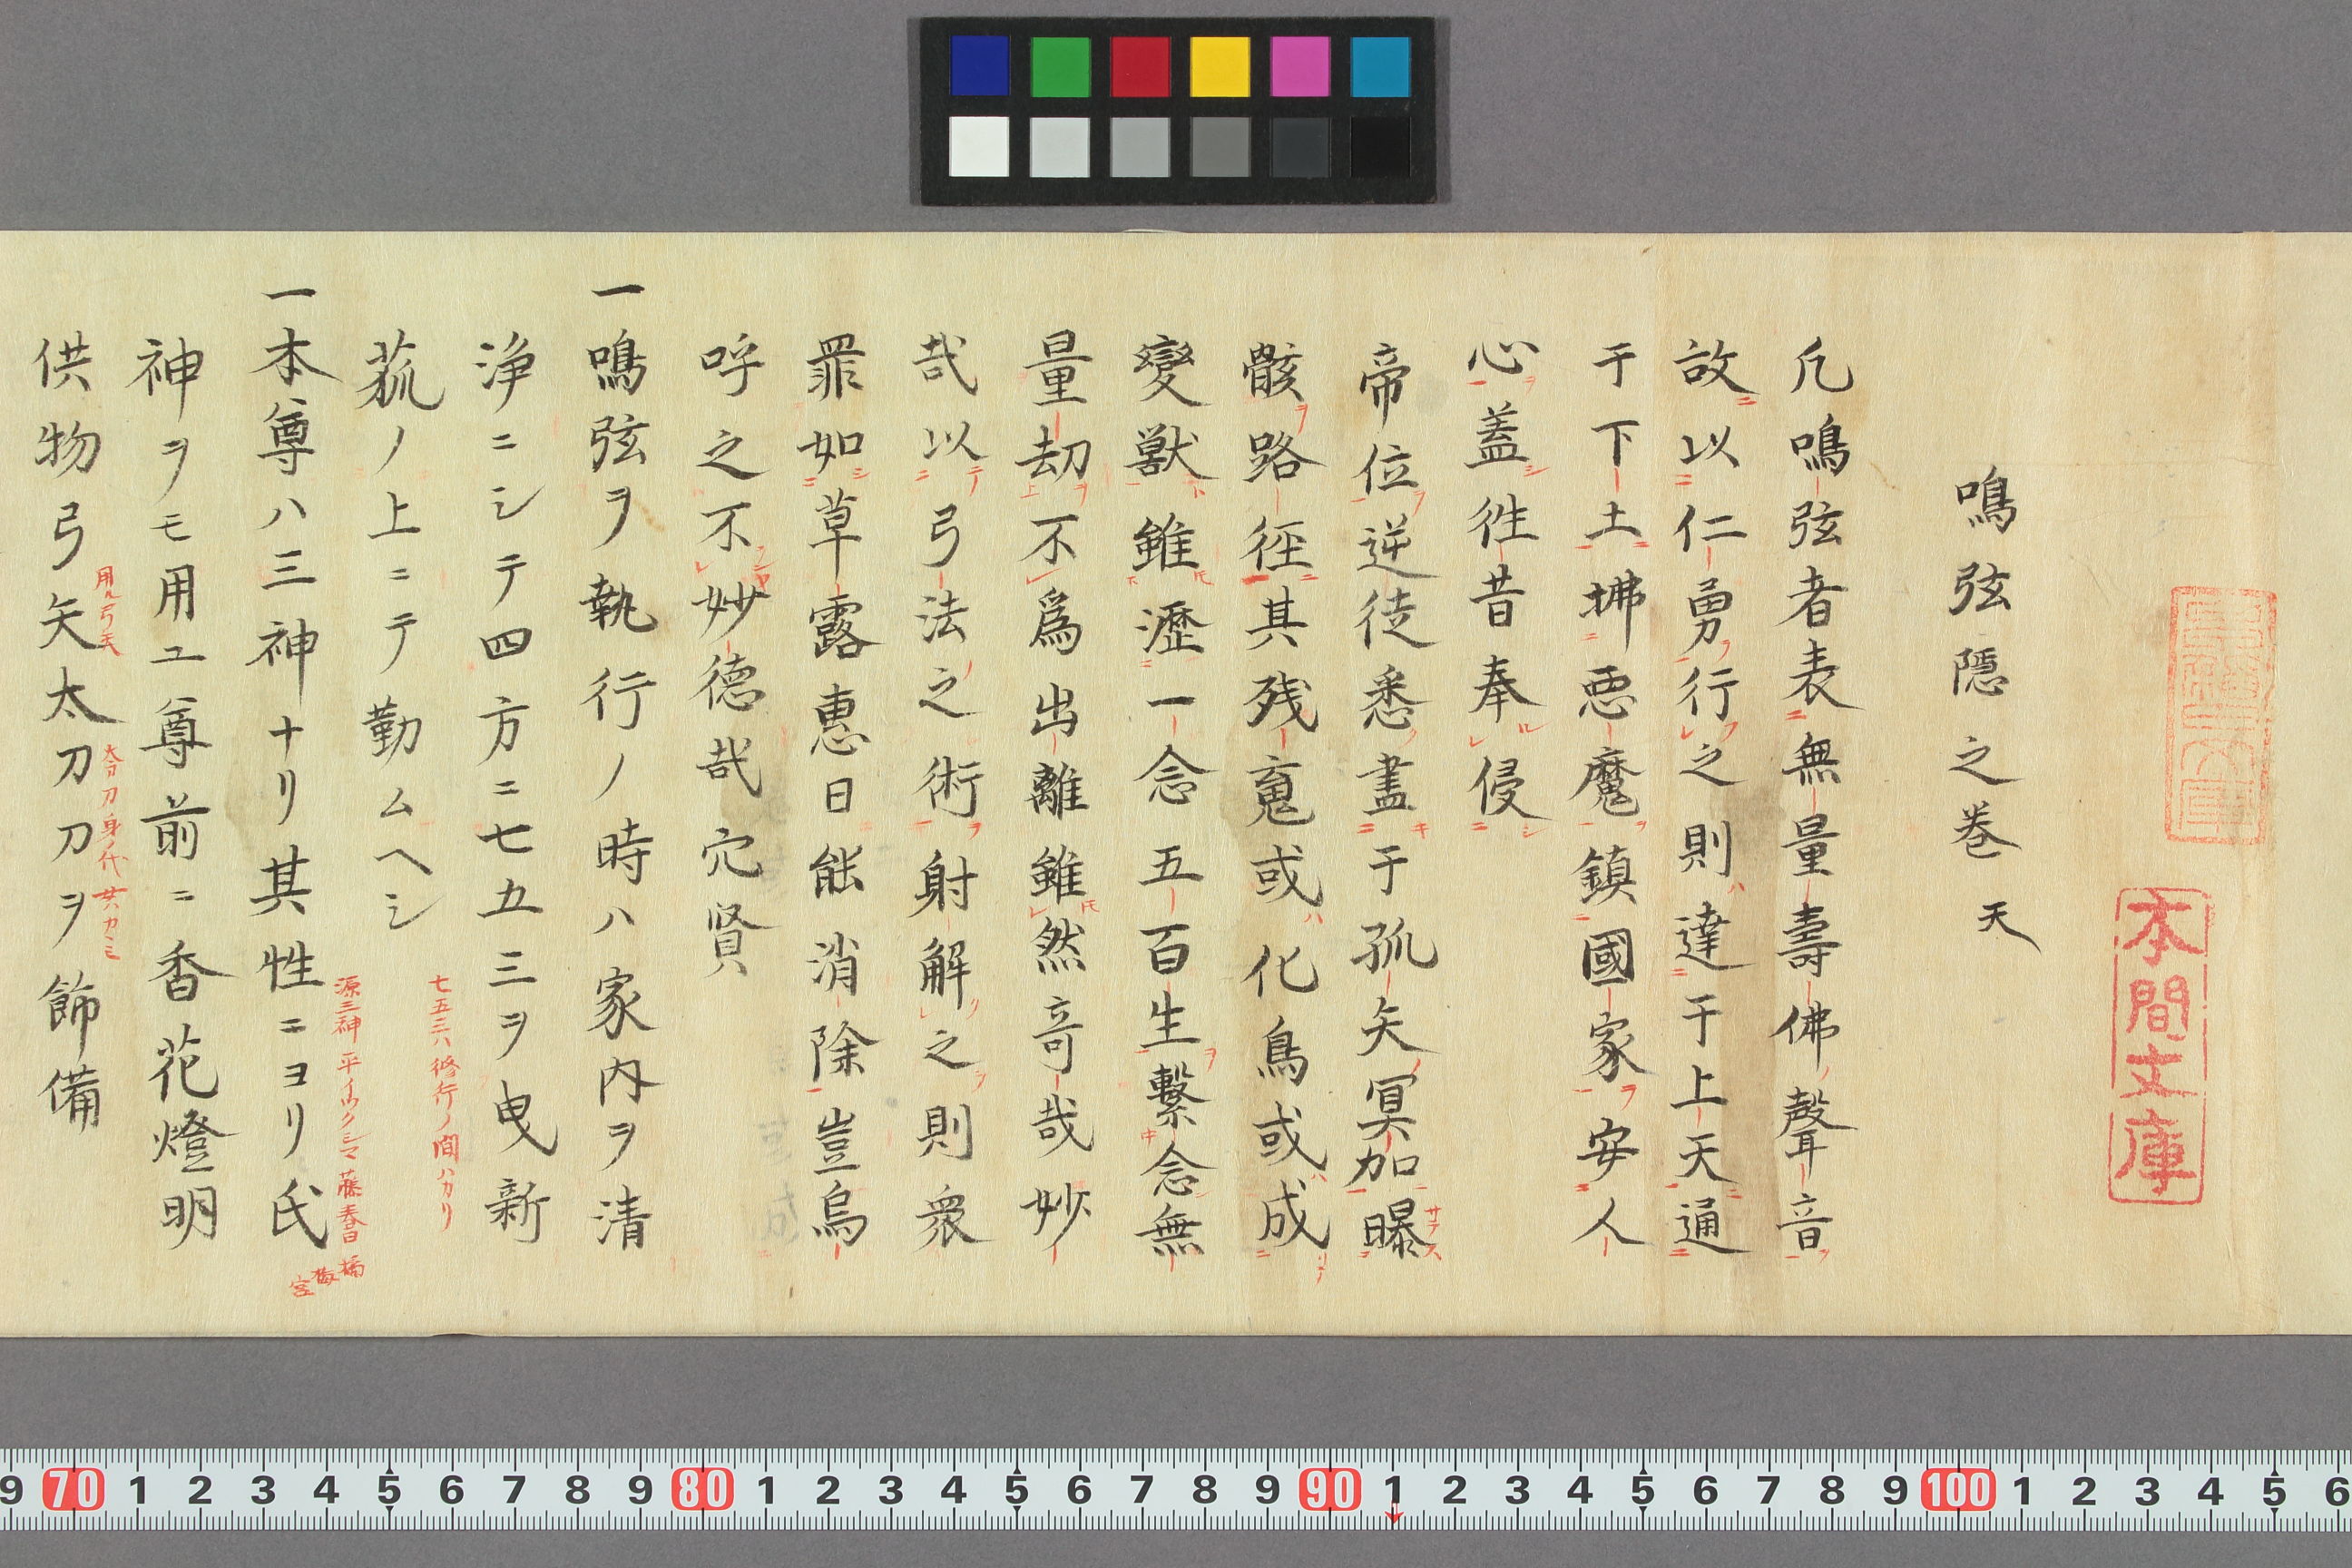 本間文庫
鳴弦隠之巻 天
凢鳴弦者表無量壽佛聲音
故以仁勇行之則達于上天通
于下土拂悪魔鎮國家安人
心蓋徃昔奉侵
帝位逆徒悉盡于孤矢冥加曝
骸路徑其残䰟或化鳥或成
變獣雖瀝一念五百生繋念無
量劫不爲出離雖然竒哉妙
哉以弓法之術射解之則衆
罪如草露惠日能消除豈烏
呼之不妙德哉穴賢
一鳴弦ヲ執行ノ時ハ家内ヲ清
浄ニシテ四方ニ七五三ヲ曳新
七五三ハ修行ノ間ハカリ
菰ノ上ニテ勤ムヘシ
源三神 平イツクシマ 藤春日 橘梅宮
一本尊ハ三神ナリ其性ニヨリ氏
神ヲモ用ユ尊前ニ香花燈明
用ル弓矢 太刀刀身ノ代共カミ
供物弓矢太刀刀ヲ飾備
9 70 1 2 3 4 5 6 7 8 9 80 1 2 3 4 5 6 7 8 9 90 1 2 3 4 5 6 7 8 9 100 1 2 3 4 5 6